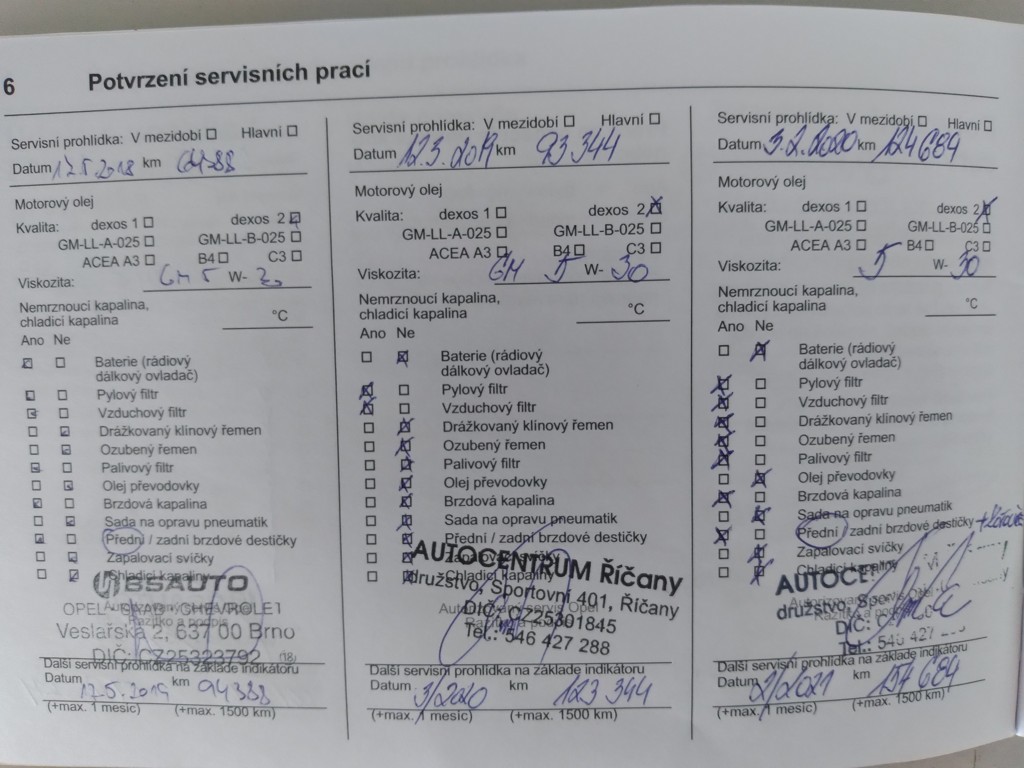 6
Potvrzení servisních prací
Servisní prohlídka: V mezidobí Hlavní
Datum 17.5.2018 km 64388
Motorový olej
Kvalita: dexos 1 dexos 2
GM-LL-A-025 GM-LL-B-025
ACEA A3 B4 C3
Viskozita: GM 5 W- 30
Nemrznoucí kapalina,
chladicí kapalina °C
Ano Ne
Baterie (rádiový
dálkový ovladač)
Pylový filtr
Vzduchový filtr
Drážkovaný klínový řemen
Ozubený řemen
Palivový filtr
Olej převodovky
Brzdová kapalina
Sada na opravu pneumatik
Přední / zadní brzdové destičky
Zapalovací svíčky
Chladicí kapaliny
BSAUTO
Autorizovaný servis Opel
OPEL, SAAB, CHEVROLET
Razítko a podpis
Veslařská 2, 637 00 Brno
DIČ: CZ25323792 (18)
Další servisní prohlídka na základe indikátoru
Datum 17.5.2019 km 94388
(+max. 1 mesíc) (+max. 1500 km)
Servisní prohlídka: V mezidobí Hlavní
Datum 12.3.2019 km 93 344
Motorový olej
Kvalita: dexos 1 dexos 2
GM-LL-A-025 GM-LL-B-025
ACEA A3 B4 C3
Viskozita: GM 5 W- 30
Nemrznoucí kapalina,
chladicí kapalina °C
Ano Ne
Baterie (rádiový
dálkový ovladač)
Pylový filtr
Vzduchový filtr
Drážkovaný klínový řemen
Ozubený řemen
Palivový filtr
Olej převodovky
Brzdová kapalina
Sada na opravu pneumatik
Přední / zadní brzdové destičky
Zapalovací svíčky
Chladicí kapaliny
AUTOCENTRUM Říčany
družstvo, Sportovní 401, Říčany
Autorizovaný servis Opel
DIČ: CZ25301845
Razítko a podpis
Tel.: 546 427 288
Další servisní prohlídka na základe indikátoru
Datum 3/2020 km 123 344
(+max. 1 mesíc) (+max. 1500 km)
Servisní prohlídka: V mezidobí Hlavní
Datum 3.2.2020 km 124 684
Motorový olej
Kvalita: dexos 1 dexos 2
GM-LL-A-025 GM-LL-B-025
ACEA A3 B4 C3
Viskozita: 5 W- 30
Nemrznoucí kapalina,
chladicí kapalina °C
Ano Ne
Baterie (rádiový
dálkový ovladač)
Pylový filtr
Vzduchový filtr
Drážkovaný klínový řemen
Ozubený řemen
Palivový filtr
Olej převodovky
Brzdová kapalina
Sada na opravu pneumatik
Přední / zadní brzdové destičky
Zapalovací svíčky
Chladicí kapaliny
družstvo,
Autorizovaný servis Opel
DIČ:
Razítko a podpis
Tel.: 546 427
Další servisní prohlídka na základe indikátoru
Datum 2/2021 km 154 684
(+max. 1 mesíc) (+max. 1500 km)